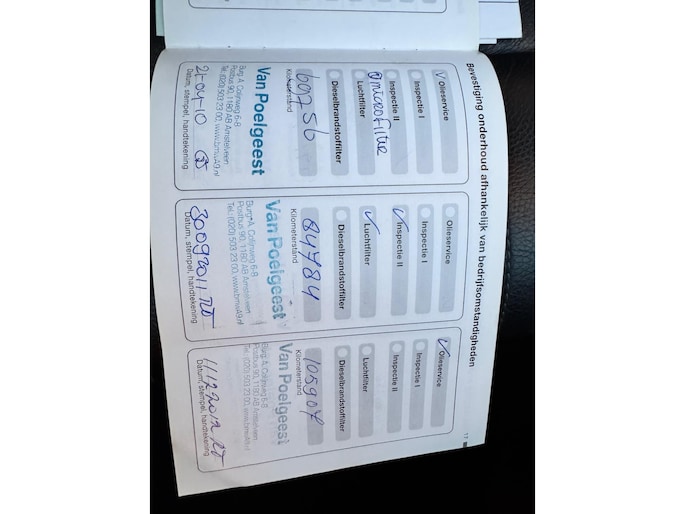 Bevestiging onderhoud afhankelijk van bedrijfsomstandigheden
√ Olieservice
Inspectie I
Inspectie II
microfilter
Luchtfilter
Dieselbrandstoffilter
60756
Kilometerstand
Van Poelgeest
Burg. A. Colijnweg 6-8
Postbus 90, 1180 AB Amstelveen
Tel. (020) 503 23 00, www.bmwA9.nl
21-04-10
Datum, stempel, handtekening
Olieservice
Inspectie I
√ Inspectie II
√ Luchtfilter
Dieselbrandstoffilter
84784
Kilometerstand
Van Poelgeest
Burg. A. Colijnweg 6-8
Postbus 90, 1180 AB Amstelveen
Tel.: (020) 503 23 00, www.bmwA9.nl
30092011
Datum, stempel, handtekening
√ Olieservice
Inspectie I
Inspectie II
Luchtfilter
Dieselbrandstoffilter
105907
Kilometerstand
Van Poelgeest
Burg. A. Colijnweg 6-8
Postbus 90, 1180 AB Amstelveen
Tel.: (020) 503 23 00, www.bmwA9.nl
11122012
Datum, stempel, handtekening
17